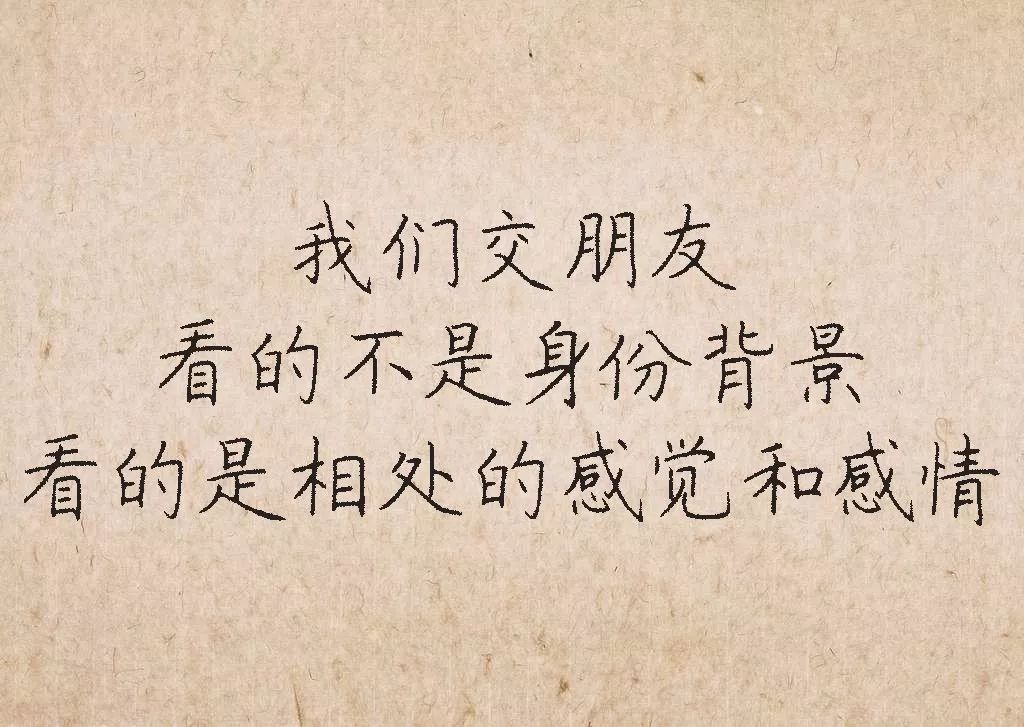 我们交朋友
看的不是身份背景
看的是相处的感觉和感情